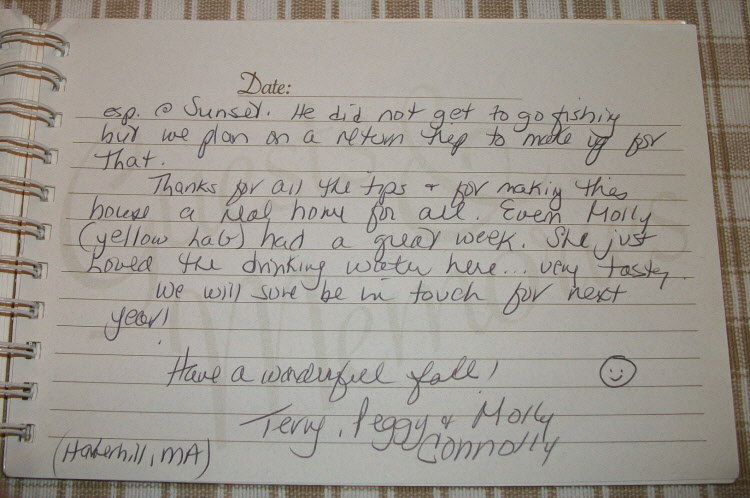 Date:
esp. @ Sunset. He did not get to go fishing
but we plan on a return trip to make up for
that.
Thanks for all the tips + for making this
house a real home for all. Even Molly
(yellow Lab) had a great week. She just
Loved the drinking water here... very tasty.
We will sure be in touch for next
year!
Have a wonderful fall!
Terry, Peggy + Molly
Connolly
(Haverhill, MA)